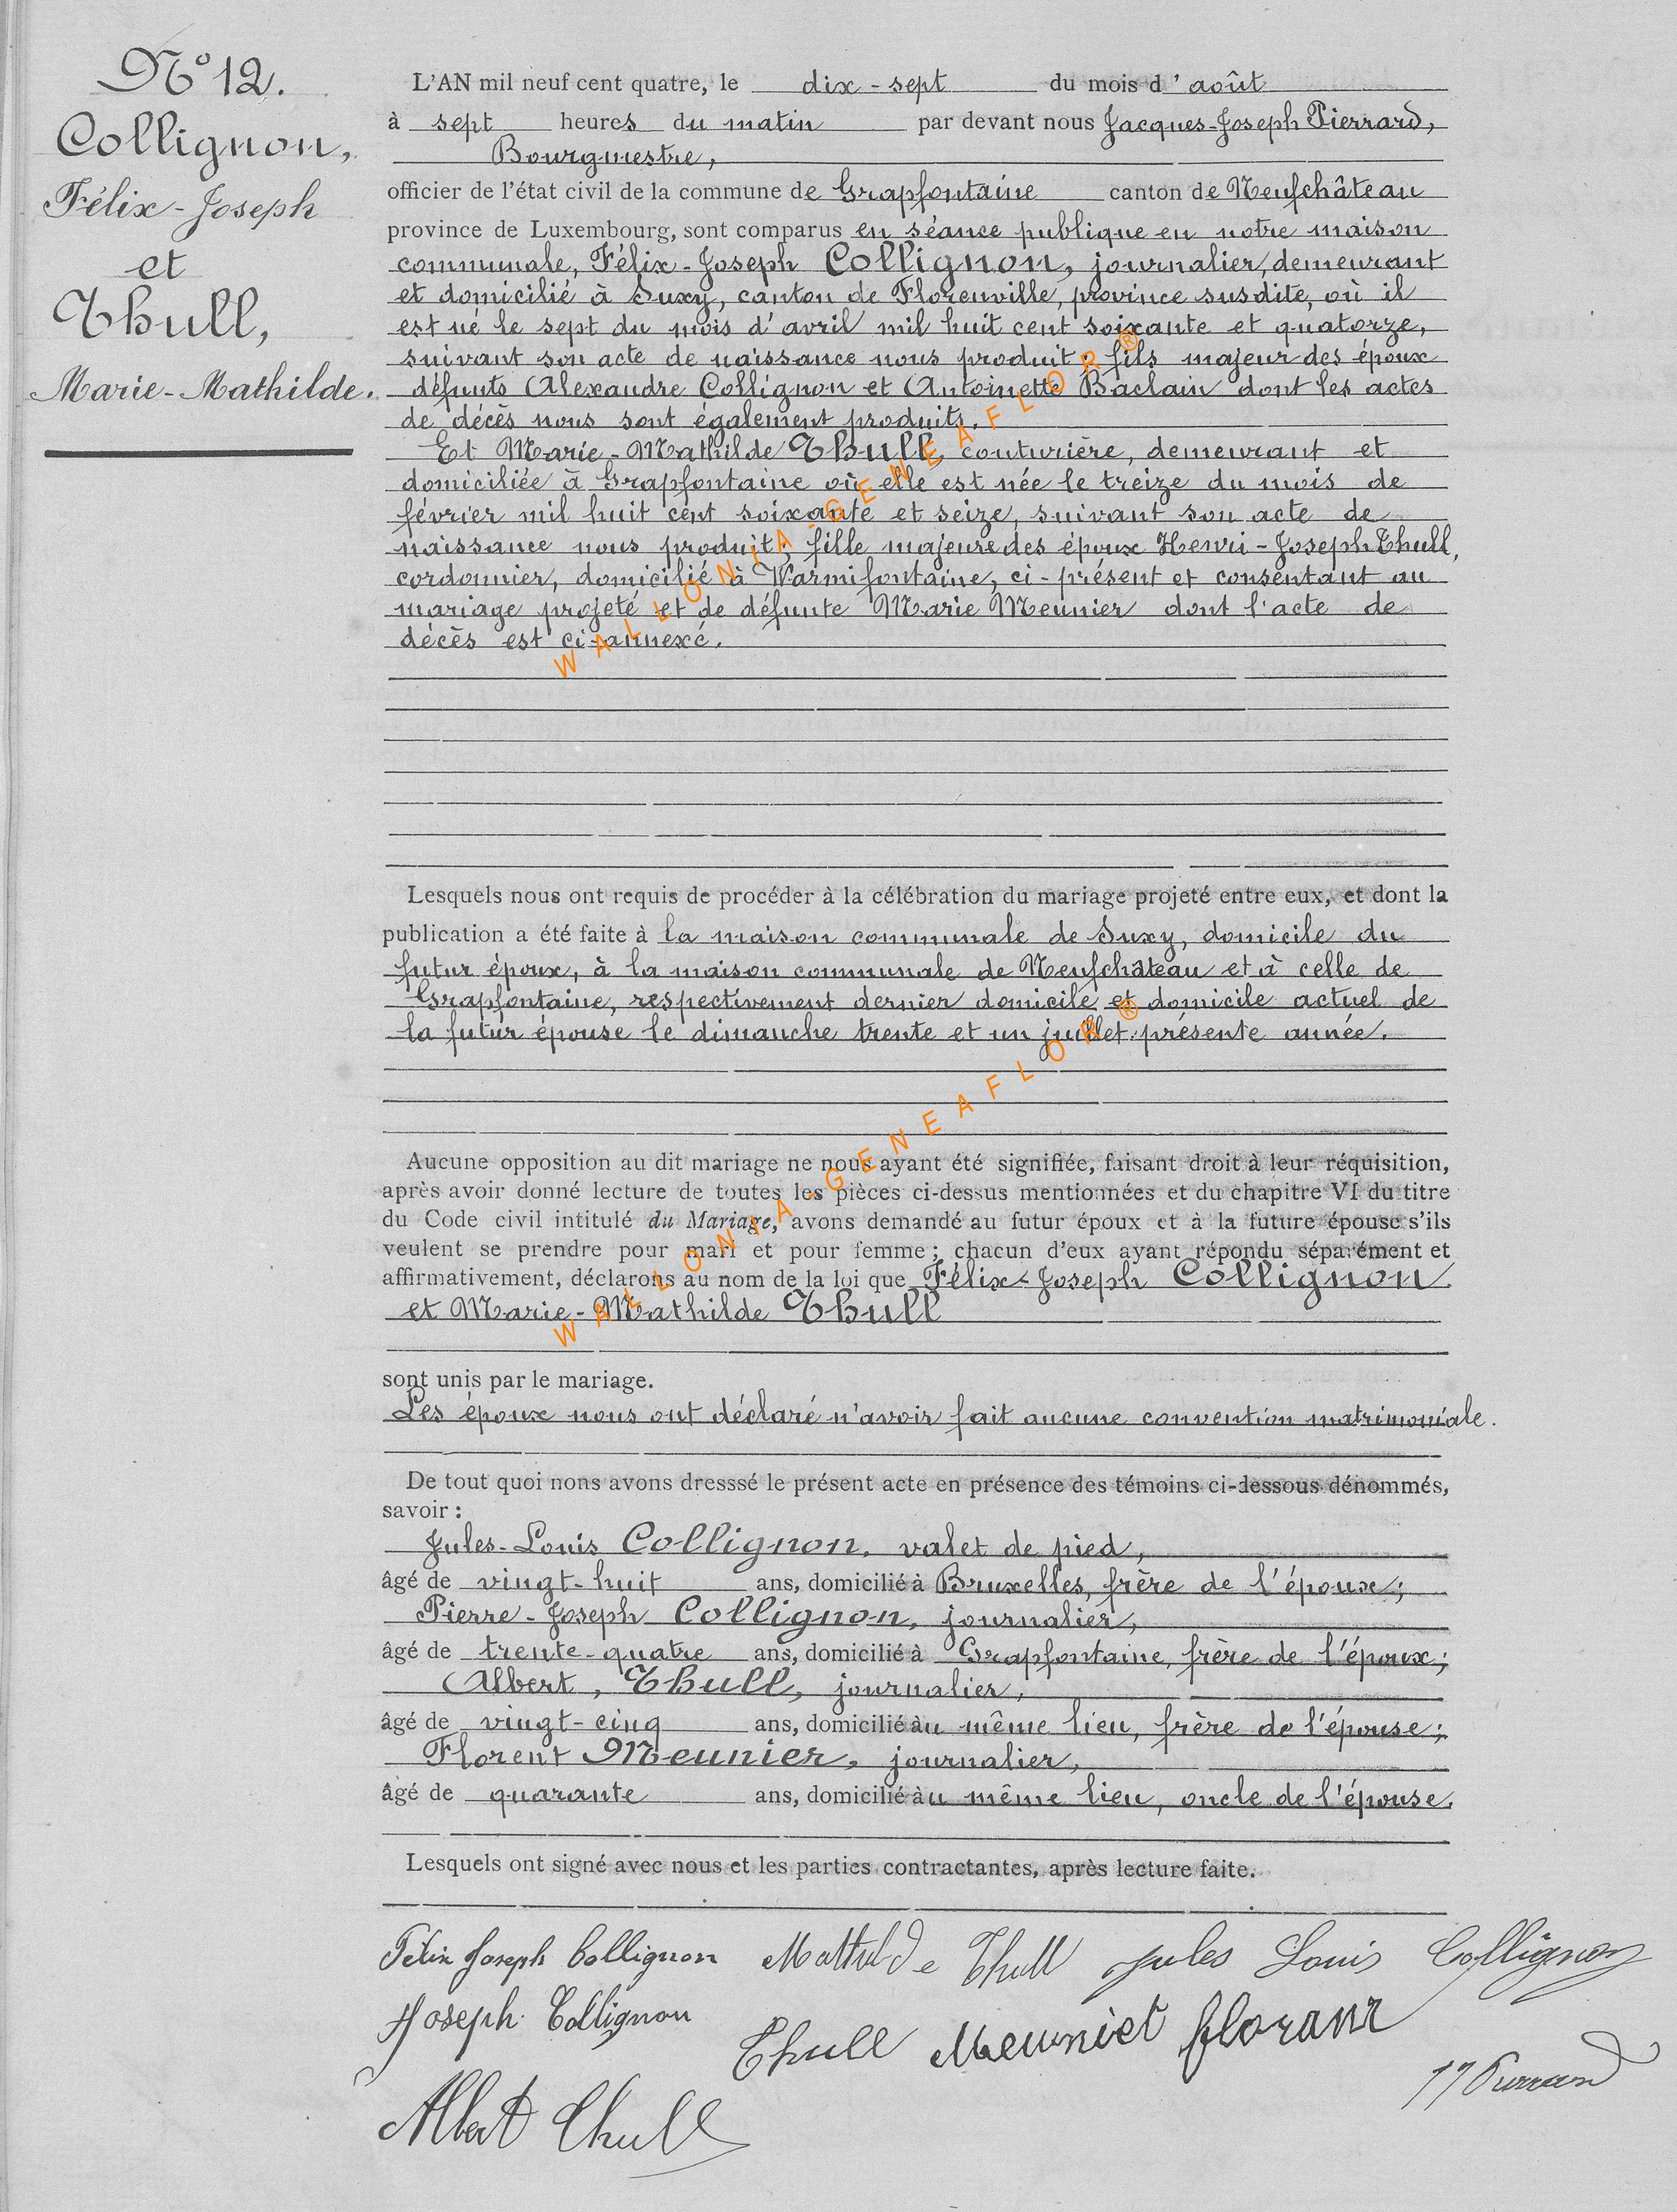 N° 12.
Collignon,
Félix-Joseph
et
Thull,
Marie-Mathilde.
L'AN mil neuf cent quatre, le dix-sept du mois d'août
à sept heures du matin par devant nous Jacques-Joseph Pierrard,
Bourgmestre,
officier de l'état civil de la commune de Grapfontaine canton de Neufchâteau
province de Luxembourg, sont comparus en séance publique en notre maison
communale, Félix-Joseph Collignon, journalier, demeurant
et domicilié à Suxy, canton de Florenville, province susdite, où il
est né le sept du mois d'avril mil huit cent soixante et quatorze,
suivant son acte de naissance nous produit; fils majeur des époux
défunts Alexandre Collignon et Antoinette Baclain dont les actes
de décès nous sont également produits.
Et Marie-Mathilde Thull, couturière, demeurant et
domiciliée à Grapfontaine où elle est née le treize du mois de
février mil huit cent soixante et seize, suivant son acte de
naissance nous produit; fille majeure des époux Henri-Joseph Thull,
cordonnier, domicilié à Warmifontaine, ci-présent et consentant au
mariage projeté et de défunte Marie Meunier dont l'acte de
décès est ci-annexé.
WALLONIA-GENEAFLOR®
Lesquels nous ont requis de procéder à la célébration du mariage projeté entre eux, et dont la
publication a été faite à la maison communale de Suxy, domicile du
futur époux, à la maison communale de Neufchâteau et à celle de
Grapfontaine, respectivement dernier domicile et domicile actuel de
la futur épouse le dimanche trente et un juillet, présente année.
Aucune opposition au dit mariage ne nous ayant été signifiée, faisant droit à leur réquisition,
après avoir donné lecture de toutes les pièces ci-dessus mentionnées et du chapitre VI du titre
du Code civil intitulé du Mariage, avons demandé au futur époux et à la future épouse s'ils
veulent se prendre pour mari et pour femme; chacun d'eux ayant répondu séparément et
affirmativement, déclarons au nom de la loi que Félix-Joseph Collignon
et Marie-Mathilde Thull
WALLONIA-GENEAFLOR®
sont unis par le mariage.
Les époux nous ont déclaré n'avoir fait aucune convention matrimoniale.
De tout quoi nons avons dresssé le présent acte en présence des témoins ci-dessous dénommés,
savoir :
Jules-Louis Collignon, valet de pied,
âgé de vingt-huit ans, domicilié à Bruxelles, frère de l'époux;
Pierre-Joseph Collignon, journalier,
âgé de trente-quatre ans, domicilié à Grapfontaine, frère de l'époux;
Albert, Thull, journalier,
âgé de vingt-cinq ans, domicilié àu même lieu, frère de l'épouse;
Florent Meunier, journalier,
âgé de quarante ans, domicilié àu même lieu, oncle de l'épouse.
Lesquels ont signé avec nous et les parties contractantes, après lecture faite.
Félix Joseph Collignon Mathilde Thull Jules Louis Collignon
Joseph Collignon Thull Meuniet florant
Albert Thull